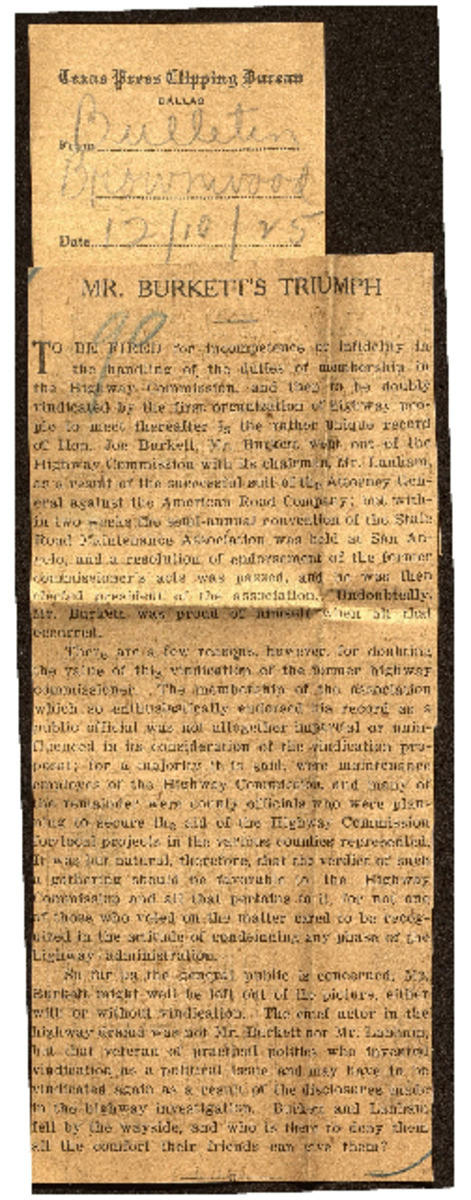 Texas Press Clipping Bureau
DALLAS
From Bulletin
Brownwood
Date 12/10/25
MR. BURKETT'S TRIUMPH
TO BE FIRED for incompetence or infidelity in
the handling of the duties of membership in
the Highway Commission, and then to be doubly
vindicated by the first organization of highway peo-
ple to meet thereafter is the rather unique record
of Hon. Joe Burkett. Mr. Burkett went out of the
Highway Commission with its chairman, Mr. Lanham,
as a result of the successful suit of the Attorney Gen-
eral against the American Road Company; but with-
in two weeks the semi-annual convention of the State
Road Maintenance Association was held at San An-
gelo, and a resolution of endorsement of the former
commissioner's acts was passed, and he was then
elected president of the association. Undoubtedly,
Mr. Burkett was proud of himself when all that
occurred.
There are a few reasons, however, for doubting
the value of this vindication of the former highway
commissioner. The membership of the association
which so enthusiastically endorsed his record as a
public official was not altogether impartial or unin-
fluenced in its consideration of the vindication pro-
posal; for a majority it is said, were maintenance
employes of the Highway Commission and many of
the remainder were county officials who were plan-
ning to secure the aid of the Highway Commission
for local projects in the various counties represented.
It was but natural, therefore, that the verdict of such
a gathering should be favorable to the Highway
Commission and all that pertains to it, for not one
of those who voted on the matter cared to be recog-
nized in the attitude of condemning any phase of the
highway administration.
So far as the general public is concerned, Mr.
Burkett might well be left out of the picture, either
with or without vindication. The chief actor in the
highway drama was not Mr. Burkett nor Mr. Lanham,
but that veteran of practical politics who invented
vindication as a political issue and may have to be
vindicated again as a result of the disclosures made
in the highway investigation. Burkett and Lanham
fell by the wayside, and who is there to deny them
all the comfort their friends can give them?